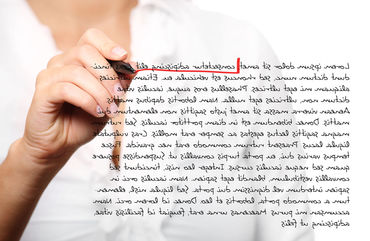 Lorem ipsum dolor sit amet, consectetur adipiscing elit.
dunt dictum nunc, sed rhoncus est vehicula eu. Etiam
aliquam mi eget ultricies. Phasellus arcu augue, iaculis vitae
dictum non, ultricies eget nulla. Nam lobortis dapibus mattis
Aenean viverra massa sit amet justo sagittis non elementum dui
mattis. Donec bibendum est in diam porttitor iaculis vitae
magna sagittis lectus egestas ac semper erat mollis. Cras vulputate
ligula lacus. Praesent rutrum commodo erat nec gravida. Fusce
tempus varius dui, eu porta turpis convallis ut. Suspendisse posuere
quam sed neque iaculis cursus. Integer leo nisi, tincidunt sed
convallis vestibulum, mattis eget sapien. Nam iaculis orci in
sapien interdum vel dignissim dui porta. Sed ligula nisl, elemen
tum a commodo porta, lobortis et leo. Donec id lorem orci. Nam
accumsan mi purus. Maecenas urna erat, feugiat id facilisis vitae,
adipiscing ut felis